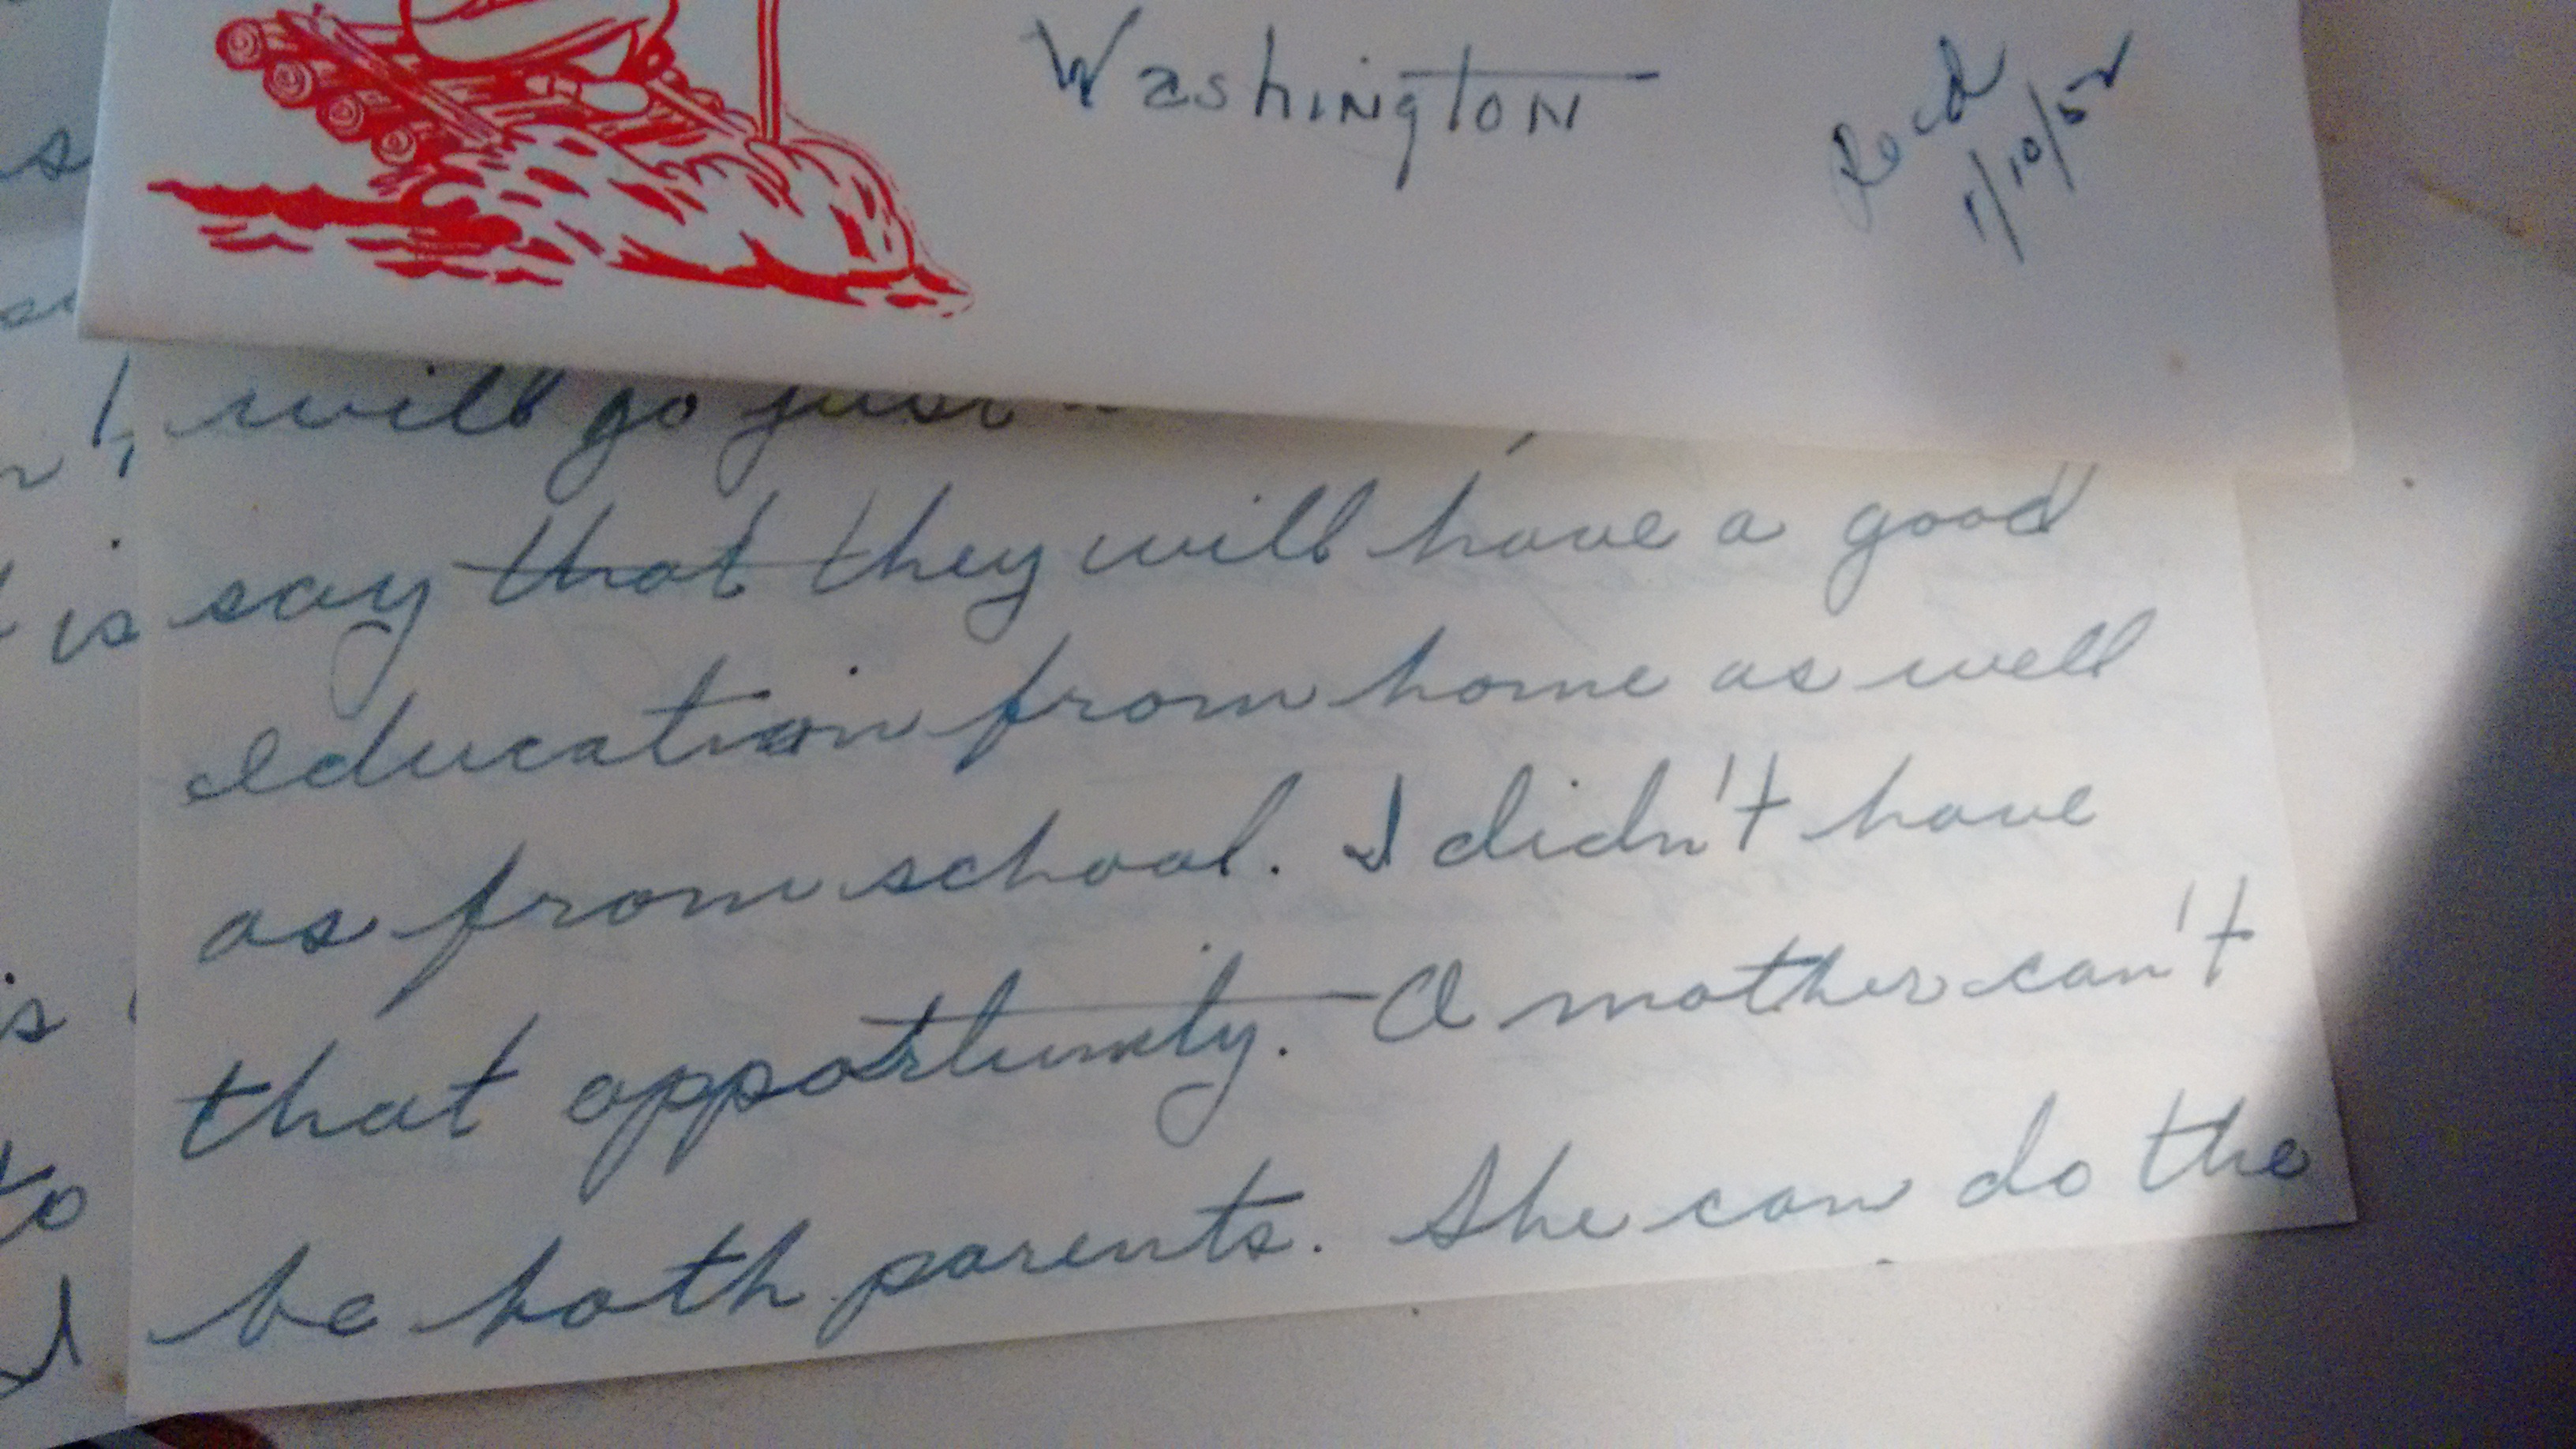 Washington
Recd
1/10/52
will go just
say that they will have a good
education from home as well
as from school. I didn't have
that opportunity. A mother can't
be both parents. She can do the
is
is
to
I